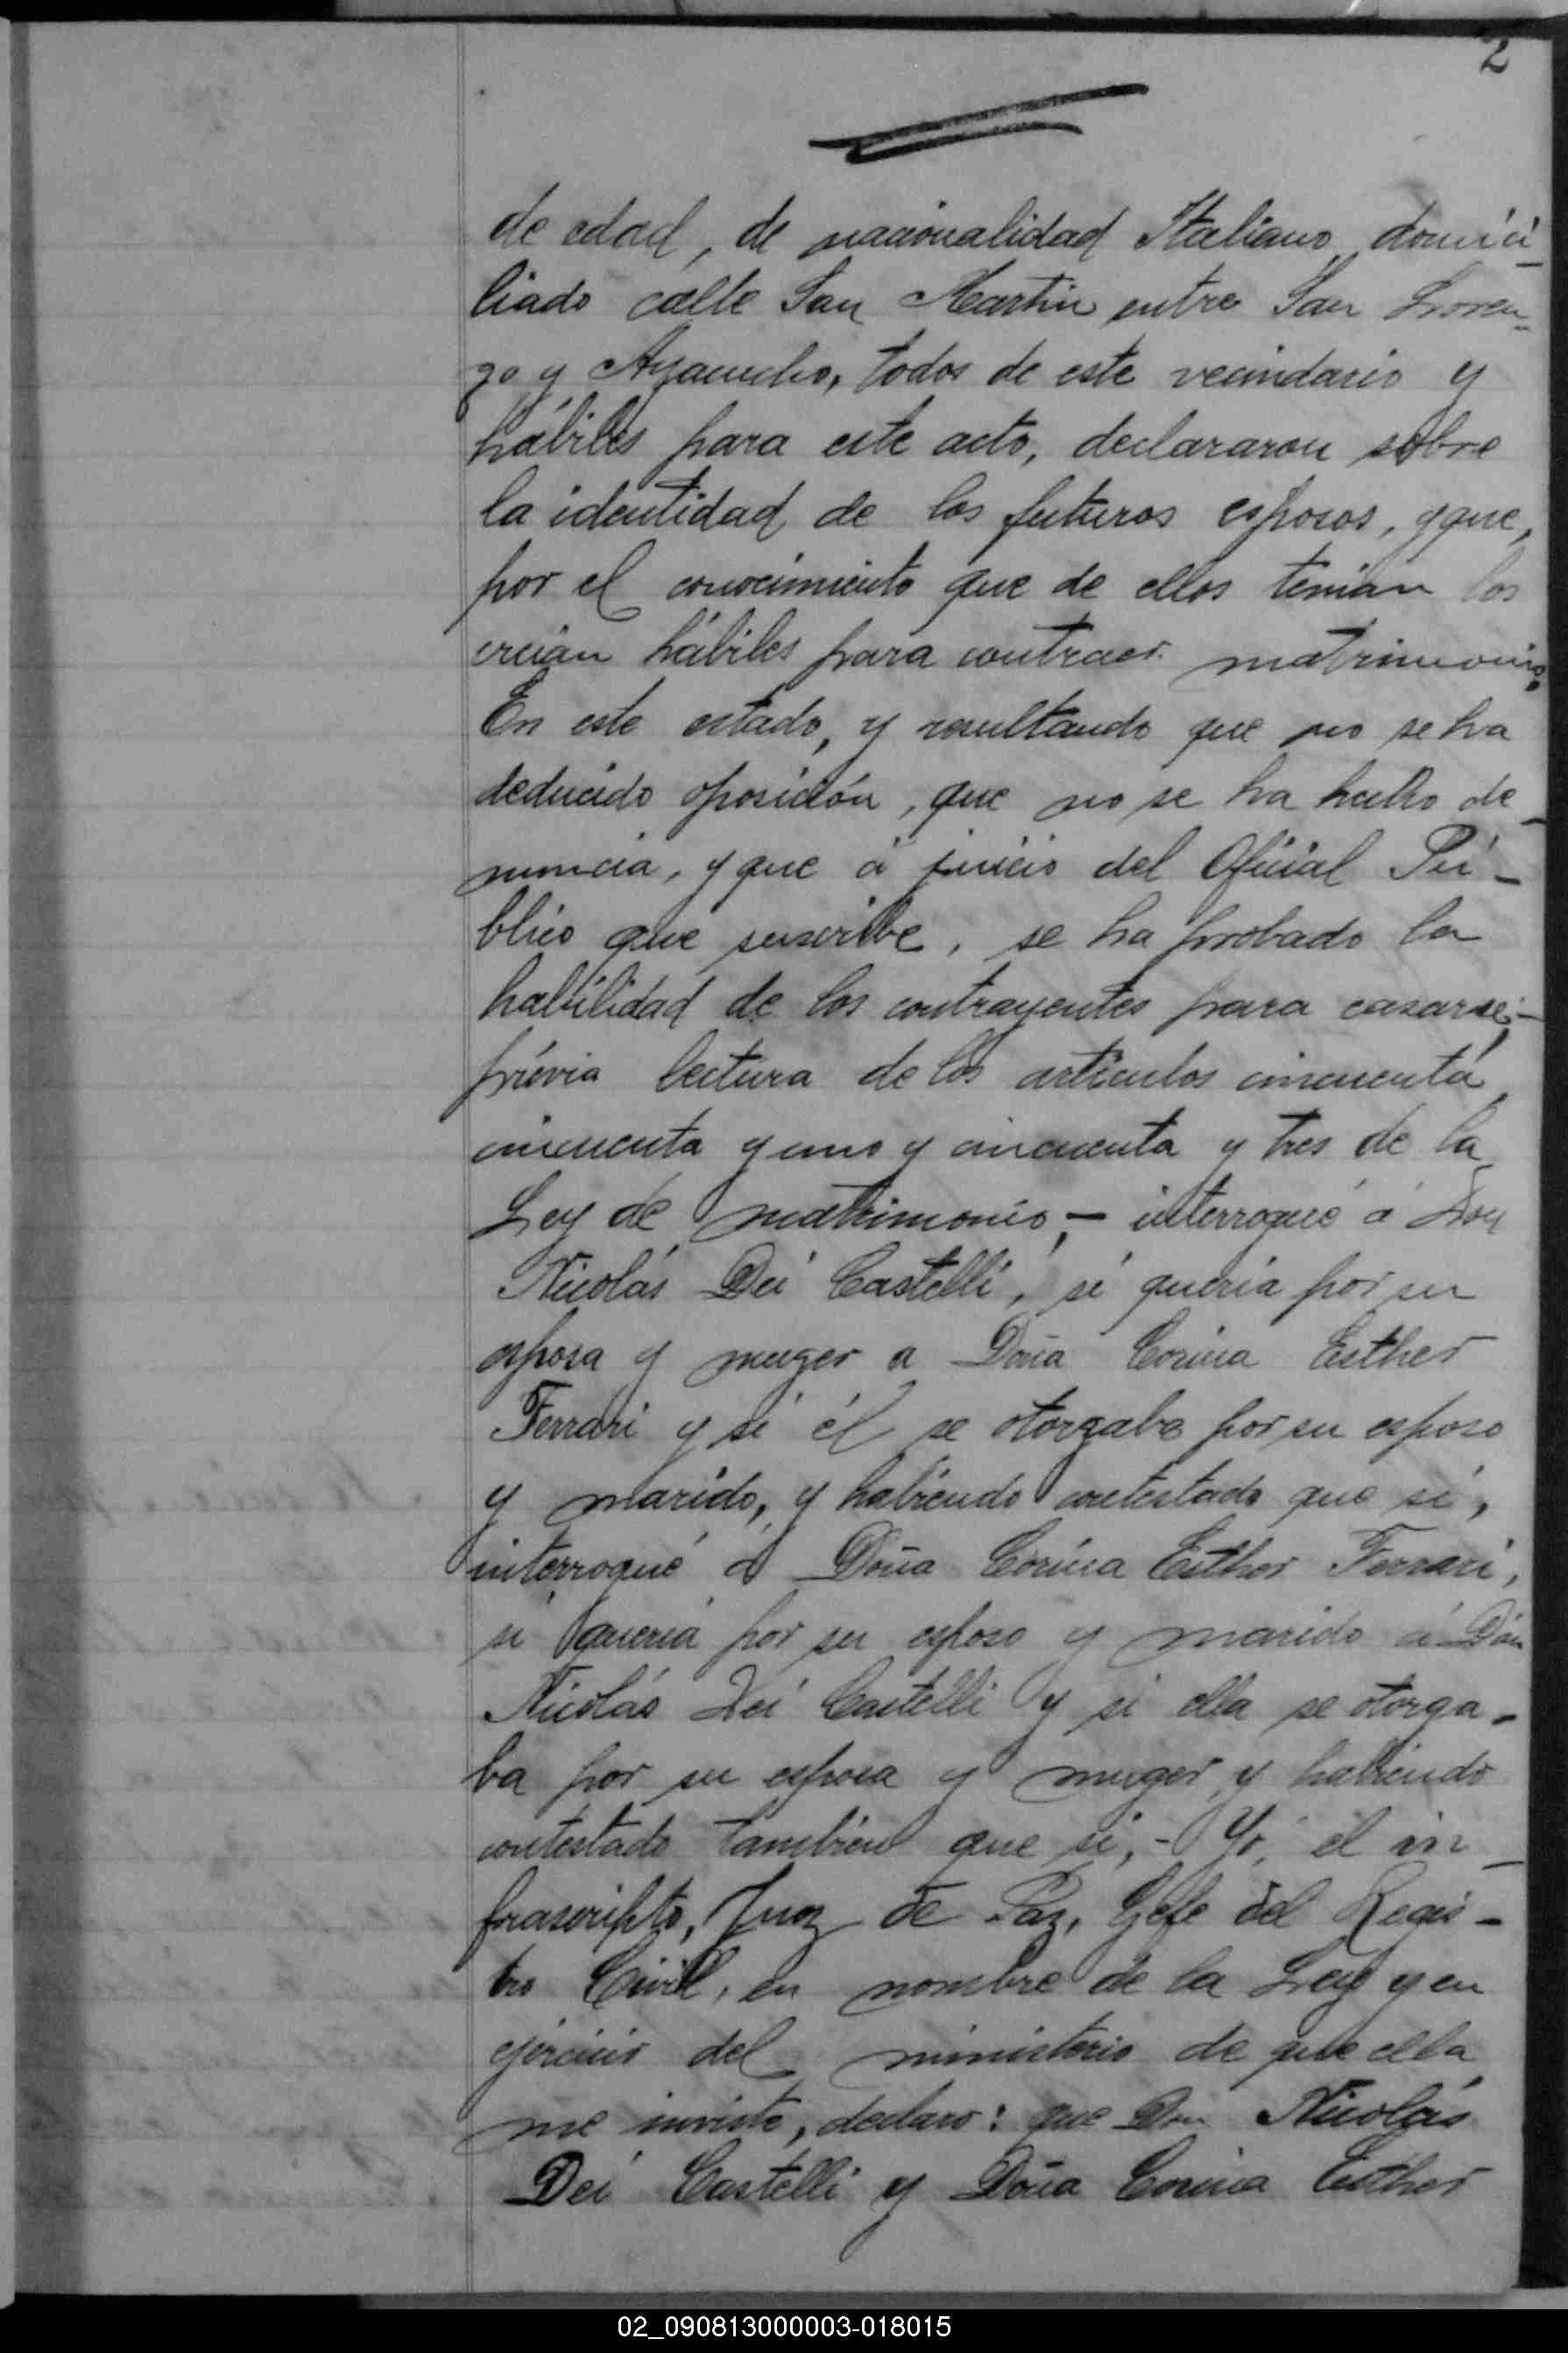 2
de edad, de nacionalidad Italiano, domici-
liado calle San Martin entre San Loren-
zo y Ayacucho, todos de este vecindario y
hábiles para este acto, declararon sobre
la identidad de los futuros esposos, y que,
por el conocimiento que de ellos tenian los
creian hábiles para contraer matrimonio.
En este estado, y resultando que no se ha
deducido oposición, que no se ha hecho de-
nuncia, y que á juicio del Oficial Pú-
blico que suscribe, se ha probado la
habilidad de los contrayentes para casarse;-
prévia lectura de los artículos cincuenta,
cincuenta y uno y cincuenta y tres de la
Ley de matrimonio,- interrogué á Don
Nicolás Dei Castelli, si queria por su
esposa y muger a Doña Corina Esther
Ferrari y si él se otorgaba por su esposo
y marido, y habiendo contestado que si,
interrogué á Doña Corina Esther Ferrari,
si queria por su esposo y marido á Don
Nicolás Dei Castelli y si ella se otorga-
ba por su esposa y muger, y habiendo
contestado tambien que si,- Yo, el in-
frascripto, Juez de Paz, Gefe del Regis-
tro Civil, en nombre de la Ley y en
ejercicio del ministerio de que ella
me inviste, declaro: que Don Nicolás
Dei Castelli y Doña Corina Esther
02_090813000003-018015